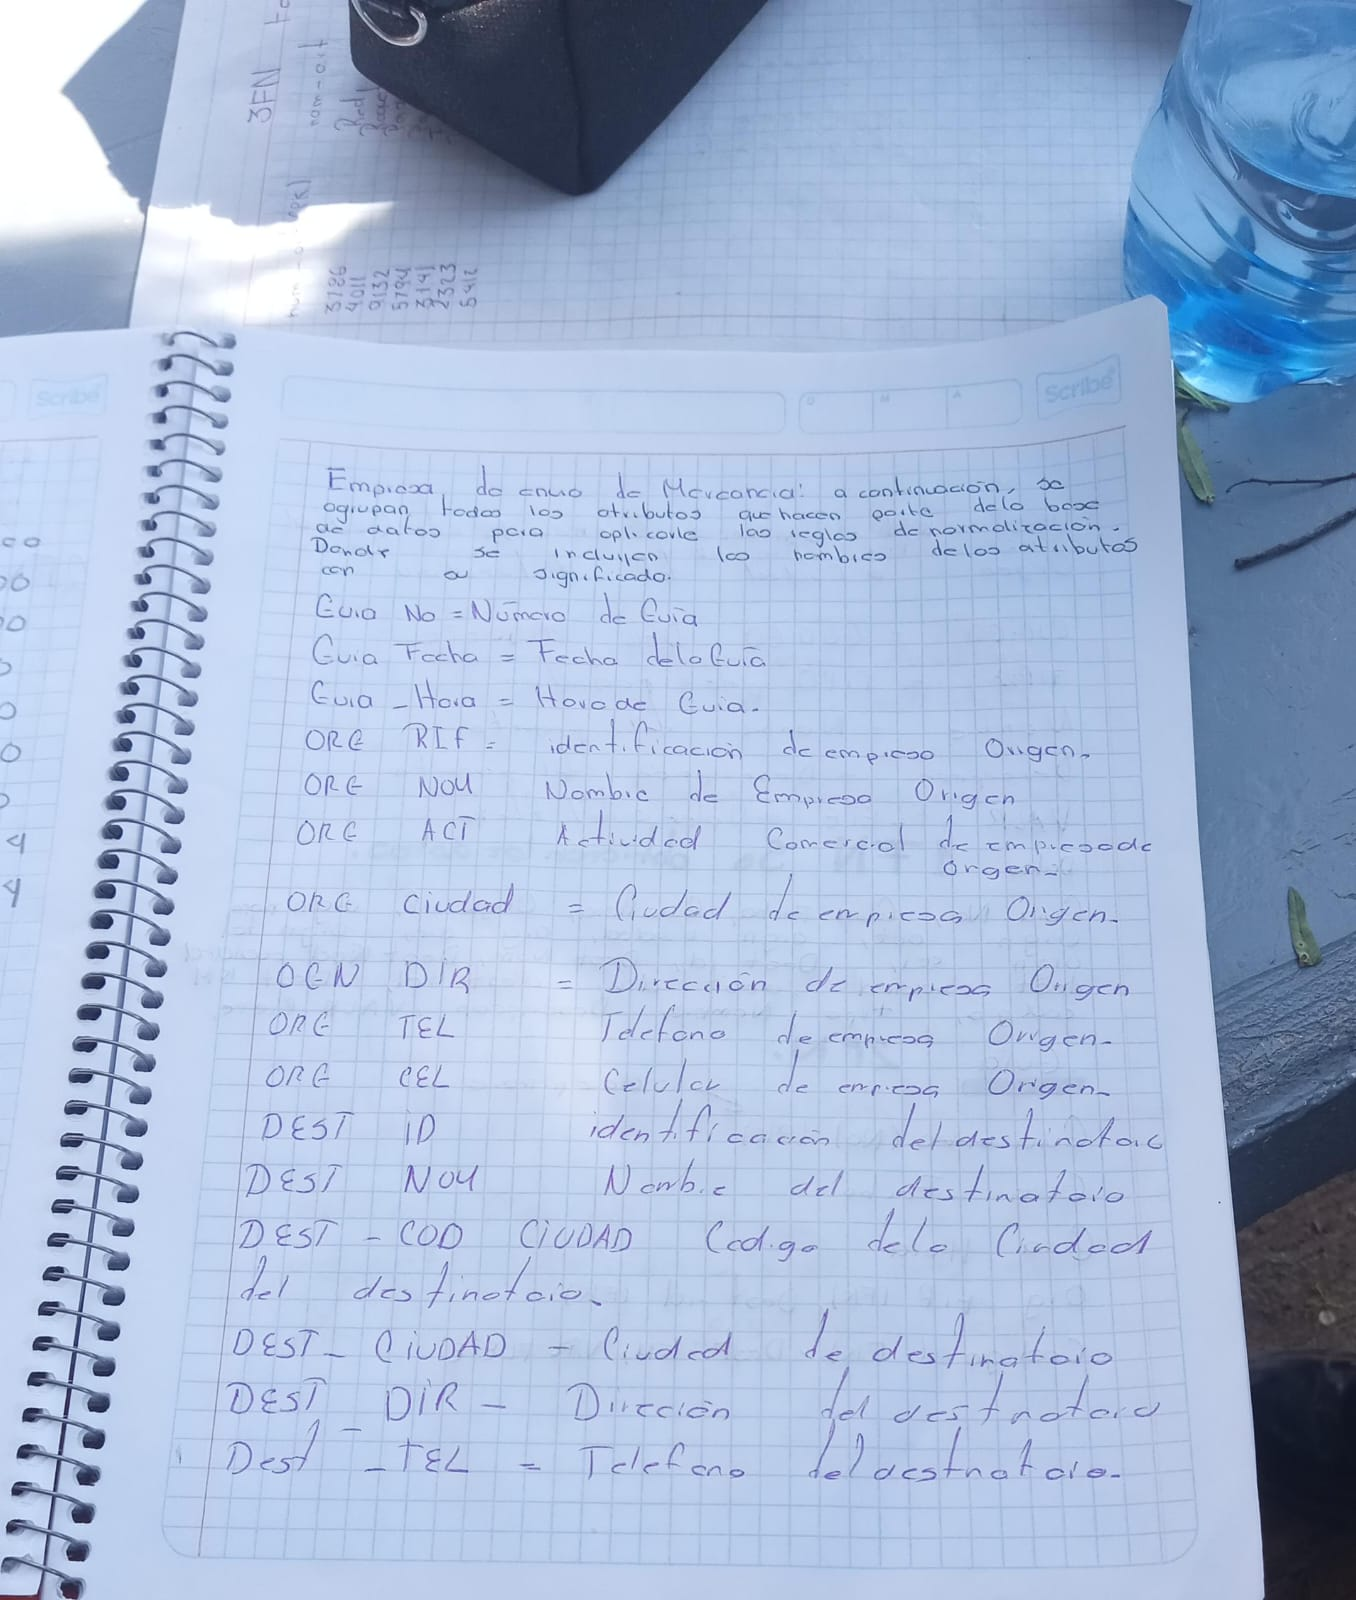 3FN
nom-art
3786
4011
9132
5794
3141
2323
5412
Scribe
Scribe
D M A
Empresa de envio de Mercancia: a continuación, se
agrupan todos los atributos que hacen parte dela base
de datos para aplicarle las reglas de normalización.
Donde se incluyen los nombres delos atributos
con su significado.
Guia No = Número de Guia
Guia Fecha = Fecha dela Guia
Guia - Hora = Hora de Guia.
ORG RIF = identificacion de empresa Origen.
ORG NOM Nombre de Empresa Origen
ORG ACT Actividad Comercial de empresa de
Orgen-
ORG Ciudad = Ciudad de empresa Origen.
OGN DIR = Dirección de empresa Origen
ORG TEL Telefono de empresa Origen-
ORG CEL Celular de empresa Origen-
DEST iD identificación del destinataio
DEST NOM Nombre del destinataio
DEST - COD CIUDAD Codigo dela Ciudad
del destinataio.
DEST - CIUDAD - Ciudad de destinataio
DEST _ DIR - Dirección del destnataio
Dest - TEL = Telefono del destnataio.